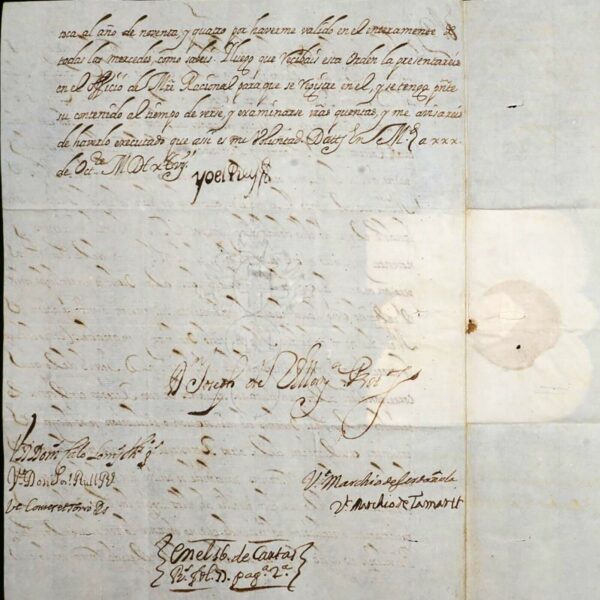 toca al año de noventa, y quatro por haverme valido en el enteramente de
todas las mercedes, como sabeis. Y luego que recibais esta orden la presentareis
en el Officio de Mre Racional para que se registre en el, y se tenga pnte
su contenido al tiempo de verse, y examinarse vras quentas, y me avisareis
de haverlo executado que assi es mi voluntad. Datts en Md a xxx
de Octre
Yo el Rey
Dn Joseph de
Vt Marchio de
Vt Marchio de Tamarit
en el lib. de Cartas
Rs. fol. 77. paga 2a